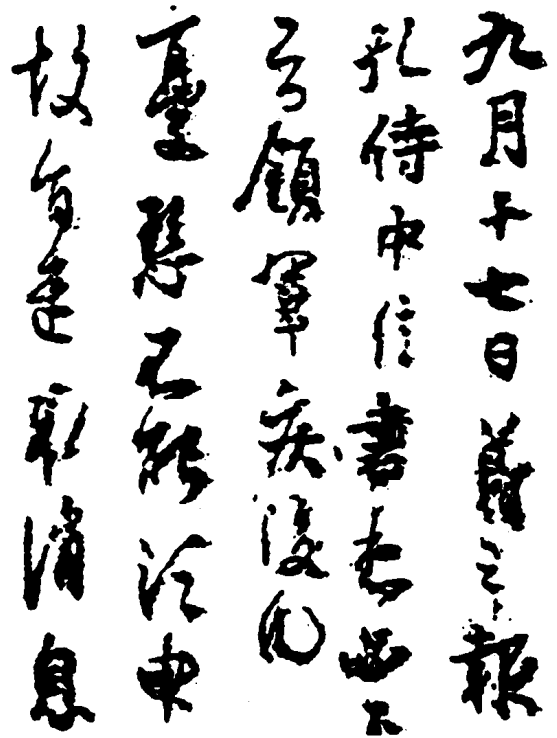 九月十七日羲之報
孔侍中信書想必至
不知領軍疾後問
憂懸不能須臾
故旋遣取消息